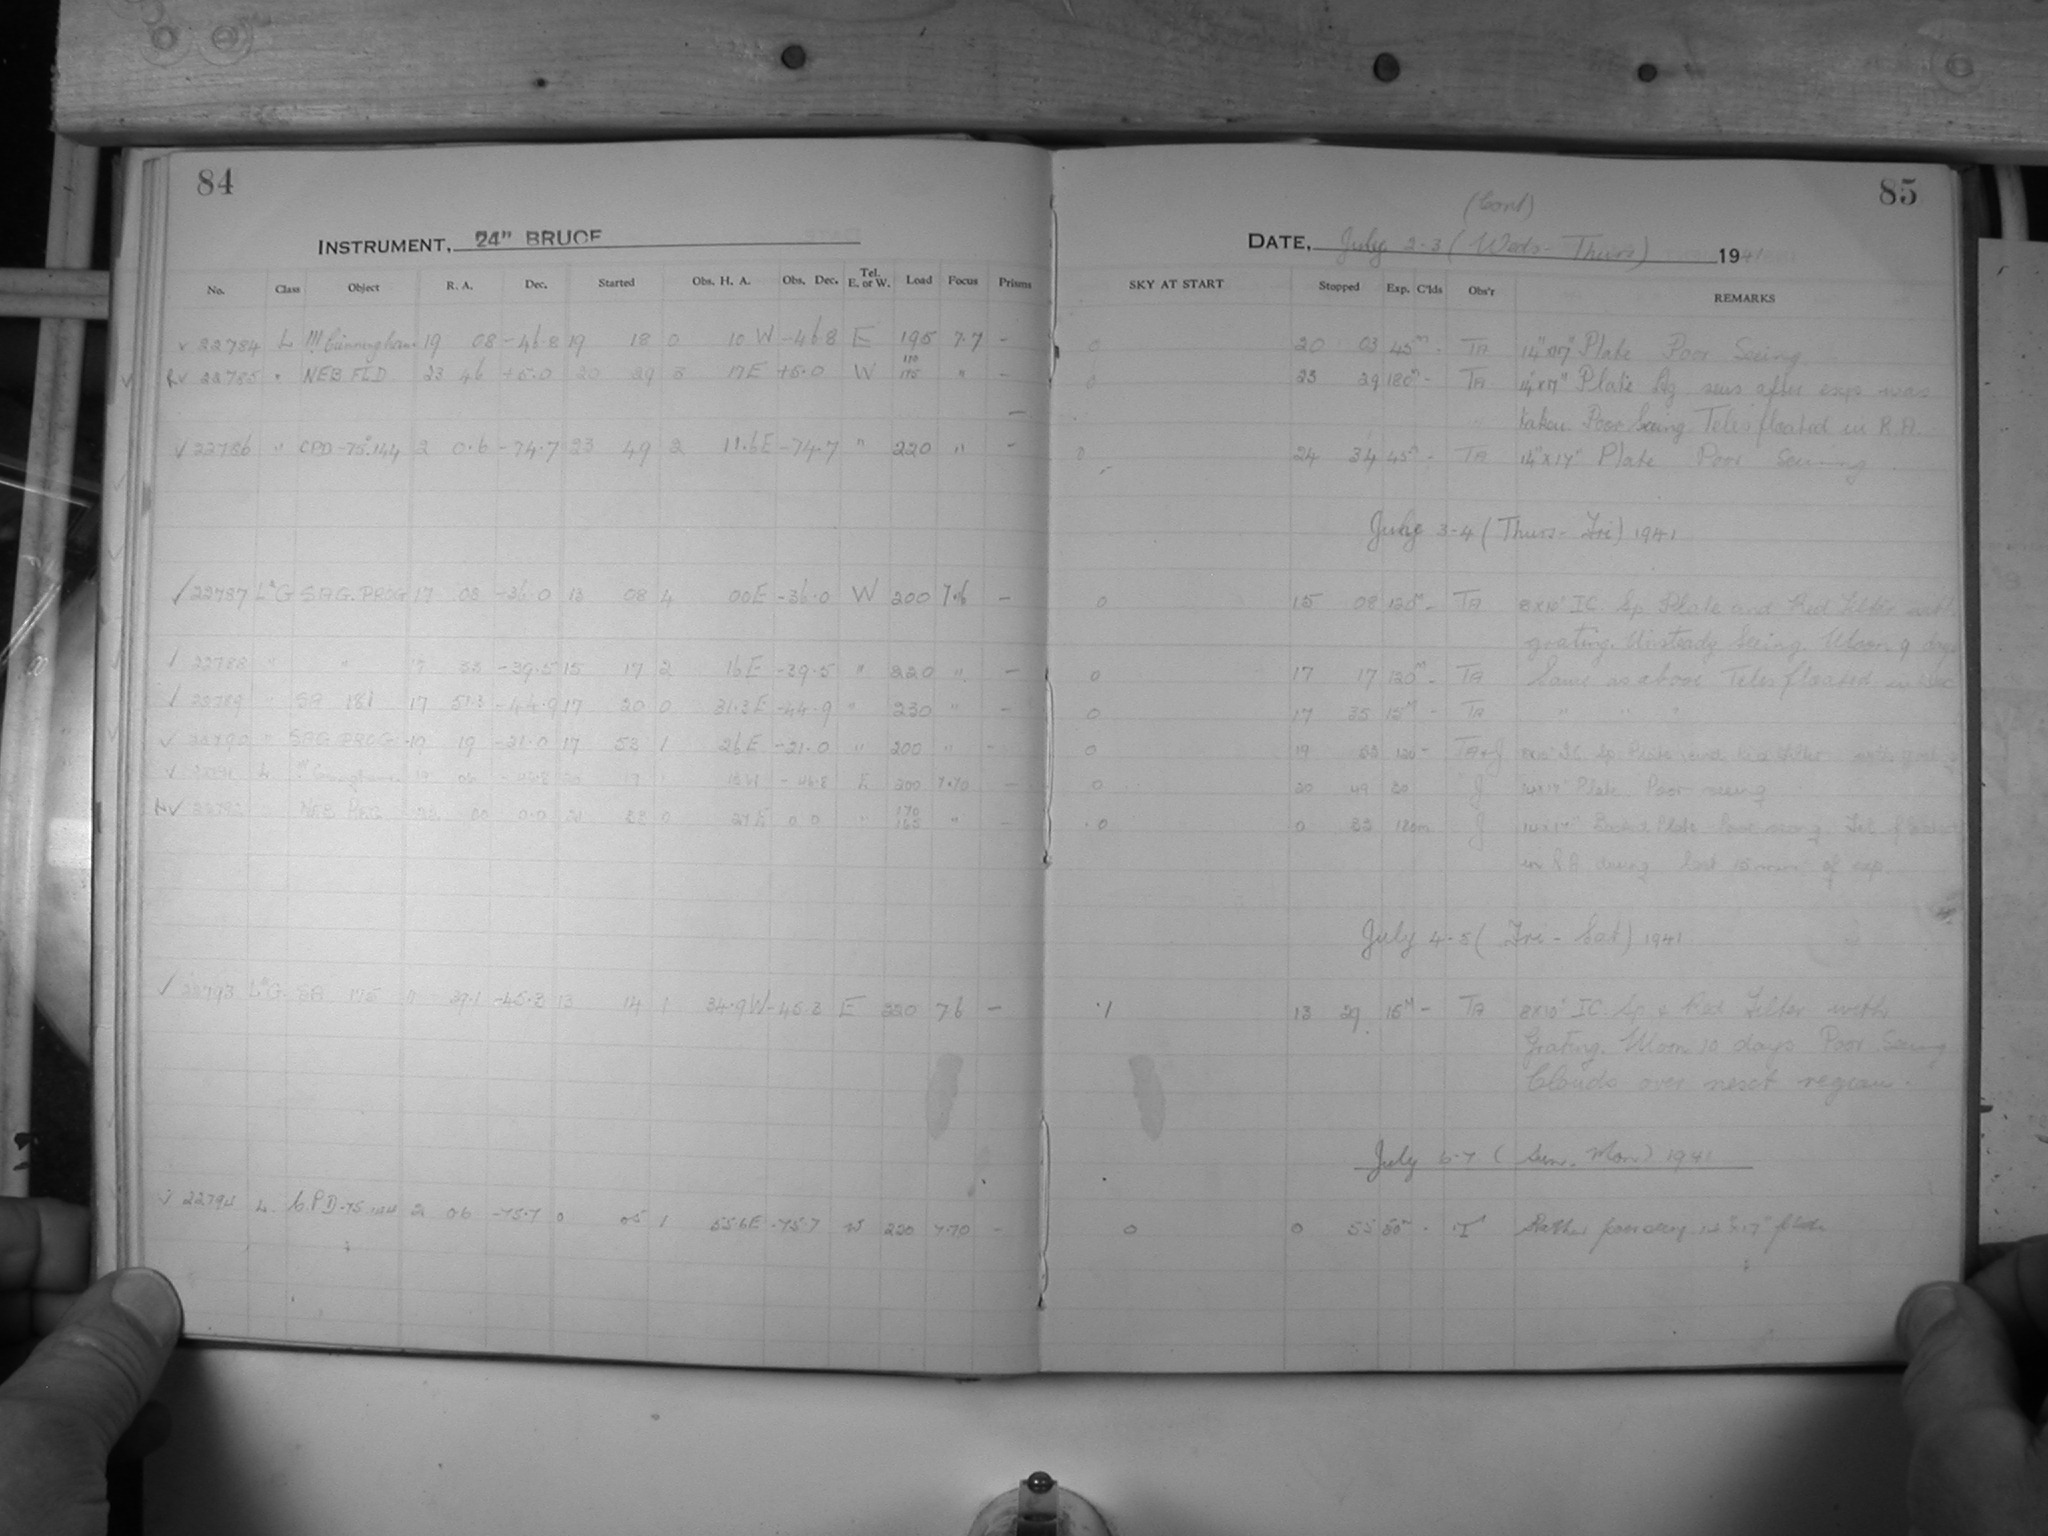 84
INSTRUMENT, 24" BRUCE
No. Class Object R. A. Dec. Started Obs. H. A. Obs. Dec. Tel. E. or W. Load Focus Prisms
22784 L Cunningham 19 08 -46.8 19 18 0 10 W -46.8 E 195 7.7 -
22785 " NEB FLD 23 46 +5.0 20 29 3 17 E +5.0 W " -
22786 " CPD -75°.144 2 0.6 -74.7 23 49 2 11.6 E -74.7 " 220 " -
22787 L G SAG. PROG 17 08 -36.0 13 08 4 00 E -36.0 W 200 7.6 -
22788 " " 17 33 -39.5 15 17 2 16 E -39.5 " 220 " -
22789 " SA 181 17 51.3 -44.9 17 20 0 31.3 E -44.9 " 230 " -
22790 " SAG PROG 19 19 -21.0 17 53 1 26 E -21.0 " 200 " -
22791 L 200 7.70 -
0.0 21 33 0 27 E 0 0 " 170 165 " -
22793 SA 175 39.1 -45.3 13 14 1 34.9 W -45.3 E 220 7.6 -
22794 L. C.P.D -75.144 2 06 -75.7 0 05 1 55.6 E -75.7 W 220 7.70 -
85
(Cont)
DATE, July 2-3 (Weds - Thurs) 1941
SKY AT START Stopped Exp. C'lds Obs'r REMARKS
0 20 03 45m - TA 14"x17" Plate Poor Seeing
0 23 29 180m - TA 14"x17" Plate Ag. sens after exps was
taken. Poor Seeing Teles floated in R.A.
0 24 34 45m - TA 14"x17" Plate Poor Seeing
July 3-4 (Thurs - Fri) 1941
0 15 08 120m - TA 8x10" IC. Sp. Plate and Red Filter with
grating. Unsteady Seeing. Moon 9 days
0 17 17 120m - TA Same as above Teles floated in Dec
0 17 35 15m - TA " " "
0 19 53 120 - TA+J 8x10" IC Sp Plate and Red Filter with grating
0 20 49 30 J 14x17" Plate. Poor seeing
0 0 33 180m J 14x17" Plate Poor seeing Tel. floated
in R.A. during last 15 mins of exp.
July 4-5 (Fri - Sat) 1941
1 13 29 15m - TA 8x10" IC Sp & Red Filter with
Grating. Moon 10 days Poor Seeing
Clouds over next region.
July 6-7 (Sun. Mon) 1941
0 0 55 50m - T Rather poor seeing 14"x17" plate